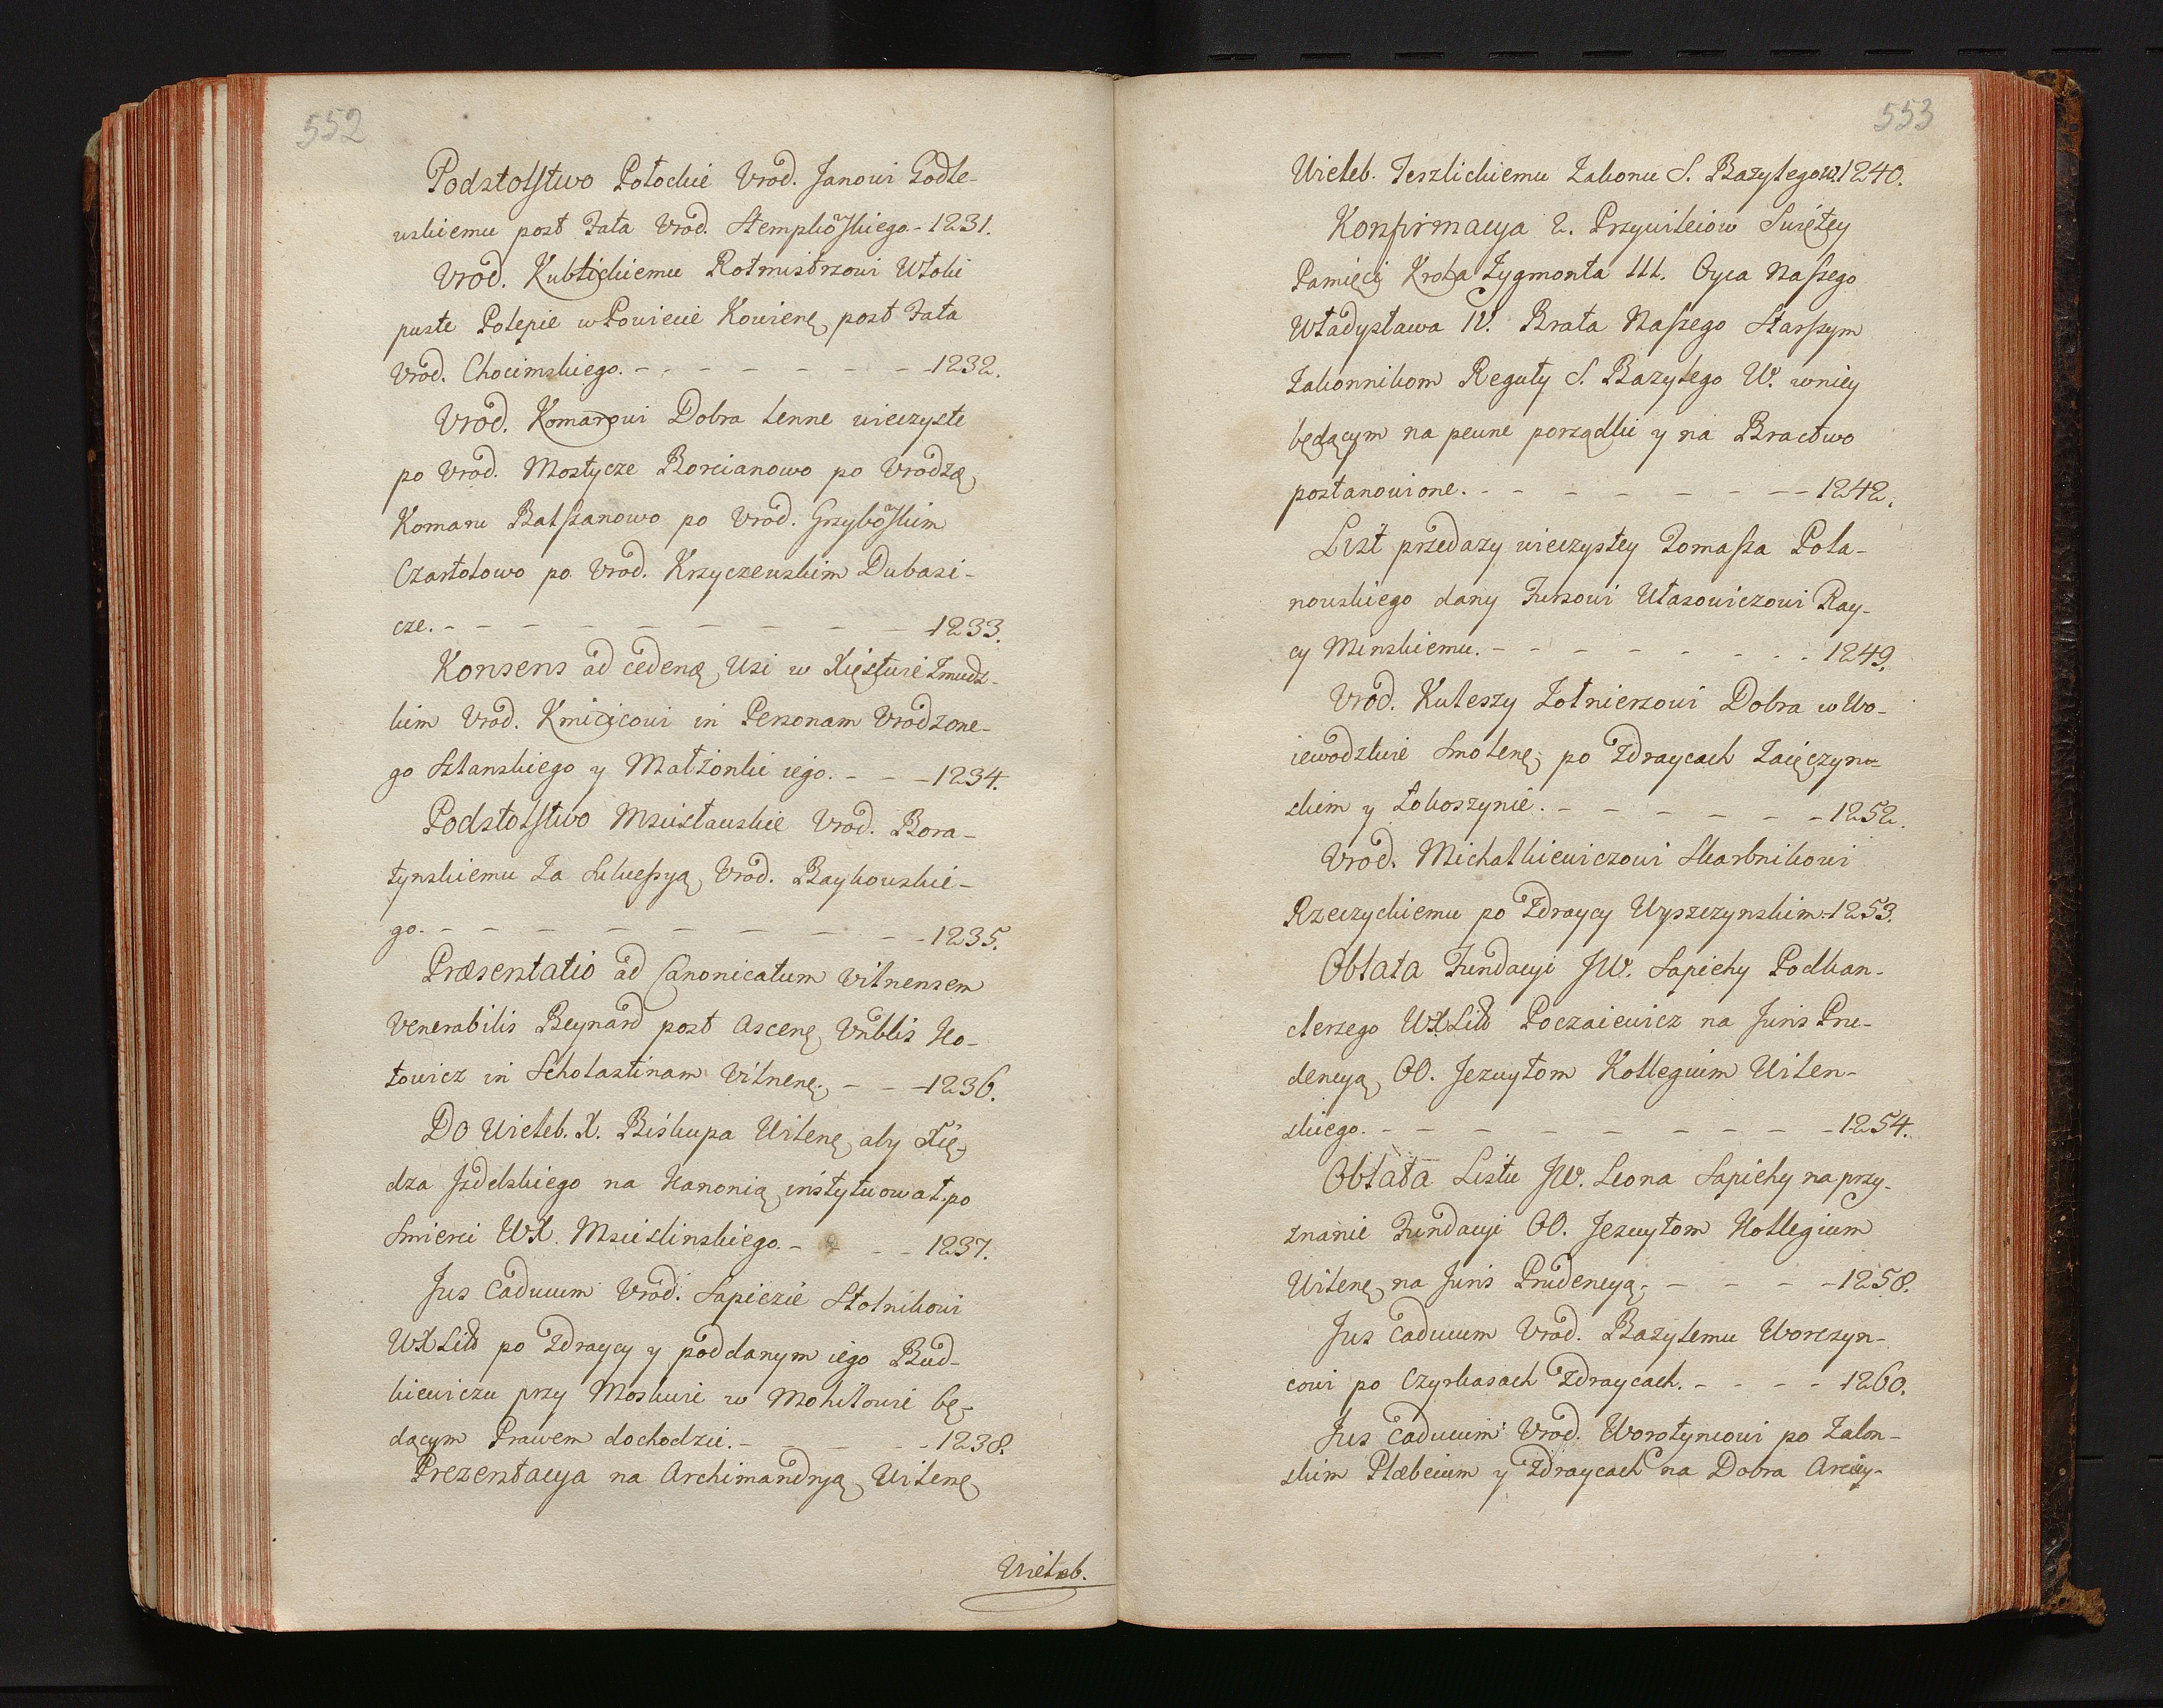 552
Podstolstwo Połockie Vrod. Janowi Godle-
wskiemu post Fata Vrod. Stempkoskiego - 1231.
Vrod. Kublickiemu Rotmistrzowi Włoki
puste Polepie w Powiecie Kowienę post Fata
Vrod. Chocimskiego. - - - - - - - 1232.
Vrod. Komarowi Dobra lenne wieczyste
po Vrod. Mostycze Borcianowo po Vrodzę
Komaru Balszanowo po Vrod. Grzyboskim
Czartolowo po Vrod. Krzyczewskim Dubasi-
cze. - - - - - - - - - 1233.
Konsens ad cedenę Wsi w Xięstwie Zmudz-
kim Vrod. Kmicicowi in Personam Vrodzone-
go Szlanskiego y Małżonki iego. - - - 1234.
Podstolstwo Mscisławskie Vrod. Bora-
tynskiemu Za Sukcessyą Vrod. Baykowskie-
go. - - - - - - - - - 1235.
Præsentatio ad Canonicatum Vilnensem
Venerabilis Beynard post Ascenę Vnblis Ko-
towicz in Scholastinam Vilnenę. - - - 1236.
Do Wieleb. X. Biskupa Wilenę aby Xię-
dza Jzdelskiego na Kanonią instytuował po
Smierci WX. Mscislinskiego. - - - - 1237.
Jus Caducum Vrod. Sapiezie Stolnikowi
WXLitt po Zdraycy y poddanym iego Bud-
kiewiczu przy Moskwie w Mohilowie bę-
dącym Prawem dochodzić. - - - - 1238.
Prezentacya na Archimandryą Wilenę
Wieleb.
553
Wieleb. Teszlickiemu Zakonu S. Bazylego W. 1240.
Konfirmacya 2. Przywileiow Swiętey
Pamięci Krola Zygmonta III. Oyca Naszego
Władysława IV. Brata Naszego Starszym
Zakonnikom Reguły S. Bazylego W. w niey
będącym na pewne porządki y na Bractwo
postanowione. - - - - - - - - 1242.
List przedazy wieczystey Tomasza Pola-
nowskiego dany Fursowi Własowiczowi Ray-
cy Minskiemu. - - - - - - - - 1249.
Vrod. Kuleszy Zołnierzowi Dobra w Wo-
iewodztwie Smolenę po Zdraycach Zaięczyn-
skim y Łokoszynie. - - - - - - 1252.
Vrod. Michalkiewiczowi Skarbnikowi
Rzeczyckiemu po Zdraycy Wyszczynskim - 1253.
Oblata Fundacyi JW. Sapiehy Podkan-
clerzego WXLitt Poczaiewicz na Juris Pru-
dencyą OO. Jezuytom Kollegium Wilen-
skiego. - - - - - - - - - 1254.
Oblata Listu JW. Leona Sapiehy na przy-
znanie Fundacyi OO. Jezuytom Kollegium
Wilenę na Juris Prudencyą. - - - - 1258.
Jus Caducum Vrod. Bazylemu Worczyn-
cowi po Czyrkasach Zdraycach. - - - - 1260.
Jus Caducum Vrod. Worotyncowi po Zalen-
skim Plæbeium y Zdraycach na Dobra